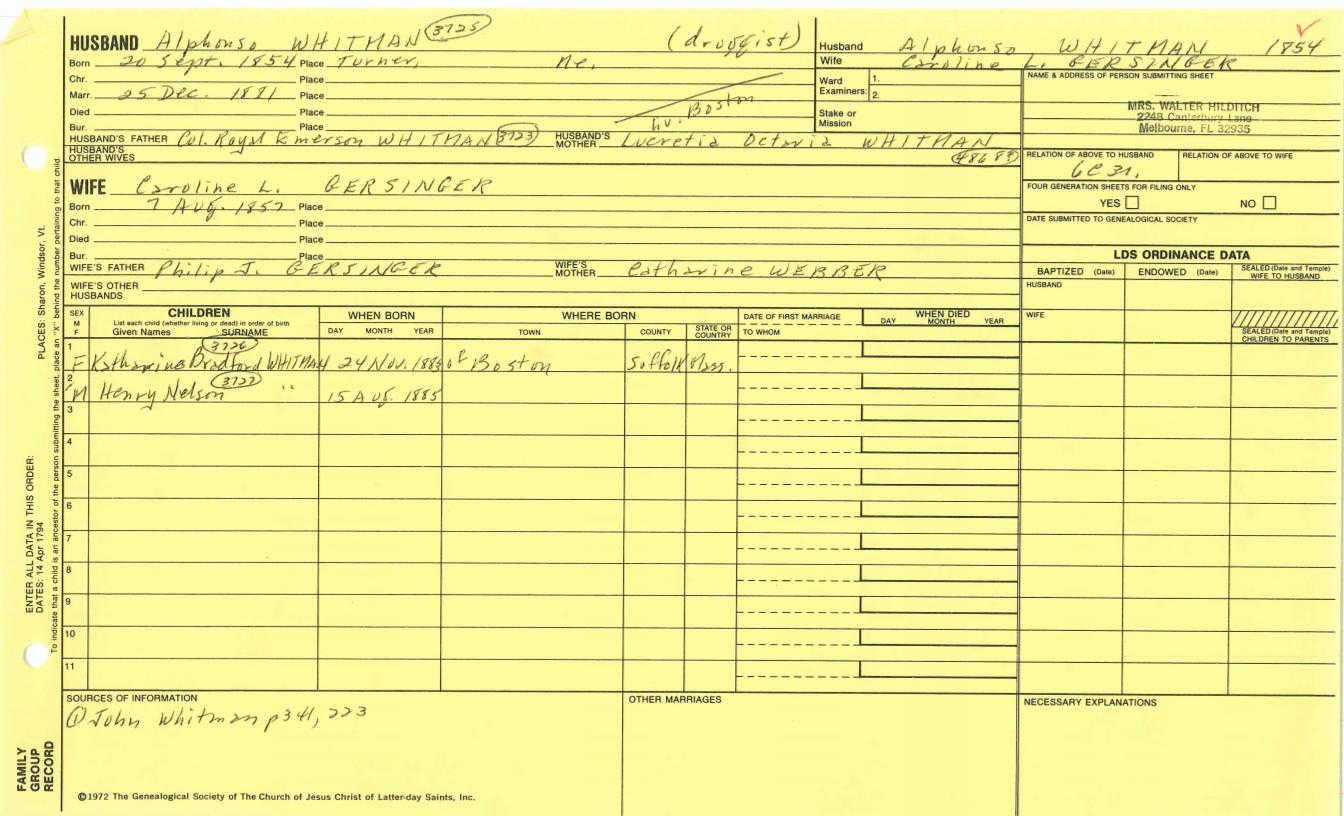 HUSBAND Alphonso WHITMAN 3725 (druggist)
Born 20 Sept. 1854 Place Turner, Me.
Chr. Place
Marr. 25 Dec. 1881 Place
Died Place
Bur. Place
Lv. Boston
HUSBAND'S FATHER Col. Royal Emerson WHITMAN 3723 HUSBAND'S MOTHER Lucretia Octavia WHITMAN
HUSBAND'S OTHER WIVES
Husband Alphonso WHITMAN 1854
Wife Caroline L. GERSINGER
Ward Examiners: 1.
2.
Stake or Mission
NAME & ADDRESS OF PERSON SUBMITTING SHEET
MRS. WALTER HILDITCH
2248 Canterbury Lane
Melbourne, FL 32935
RELATION OF ABOVE TO HUSBAND RELATION OF ABOVE TO WIFE
FOUR GENERATION SHEETS FOR FILING ONLY
YES NO
DATE SUBMITTED TO GENEALOGICAL SOCIETY
WIFE Caroline L. GERSINGER
Born 7 Aug. 1857 Place
Chr. Place
Died Place
Bur. Place
WIFE'S FATHER Philip J. GERSINGER WIFE'S MOTHER Catharine WEBBER
WIFE'S OTHER HUSBANDS
LDS ORDINANCE DATA
BAPTIZED (Date) ENDOWED (Date) SEALED (Date and Temple) WIFE TO HUSBAND
HUSBAND
WIFE
SEALED (Date and Temple) CHILDREN TO PARENTS
SEX M F
CHILDREN
List each child (whether living or dead) in order of birth
Given Names SURNAME
WHEN BORN
DAY MONTH YEAR
WHERE BORN
TOWN COUNTY STATE OR COUNTRY
DATE OF FIRST MARRIAGE
TO WHOM
WHEN DIED
DAY MONTH YEAR
3726
1 F Katharine Bradford WHITMAN 24 Nov. 1883 of Boston Suffolk Mass.
3727
2 M Henry Nelson " 15 Aug. 1885
3
4
5
6
7
8
9
10
11
SOURCES OF INFORMATION
① John Whitman p 341, 223
OTHER MARRIAGES
NECESSARY EXPLANATIONS
©1972 The Genealogical Society of The Church of Jesus Christ of Latter-day Saints, Inc.
FAMILY GROUP RECORD
ENTER ALL DATA IN THIS ORDER:
DATES: 14 Apr 1794
PLACES: Sharon, Windsor, Vt.
To indicate that a child is an ancestor of the person submitting the sheet, place an "X" behind the number pertaining to that child